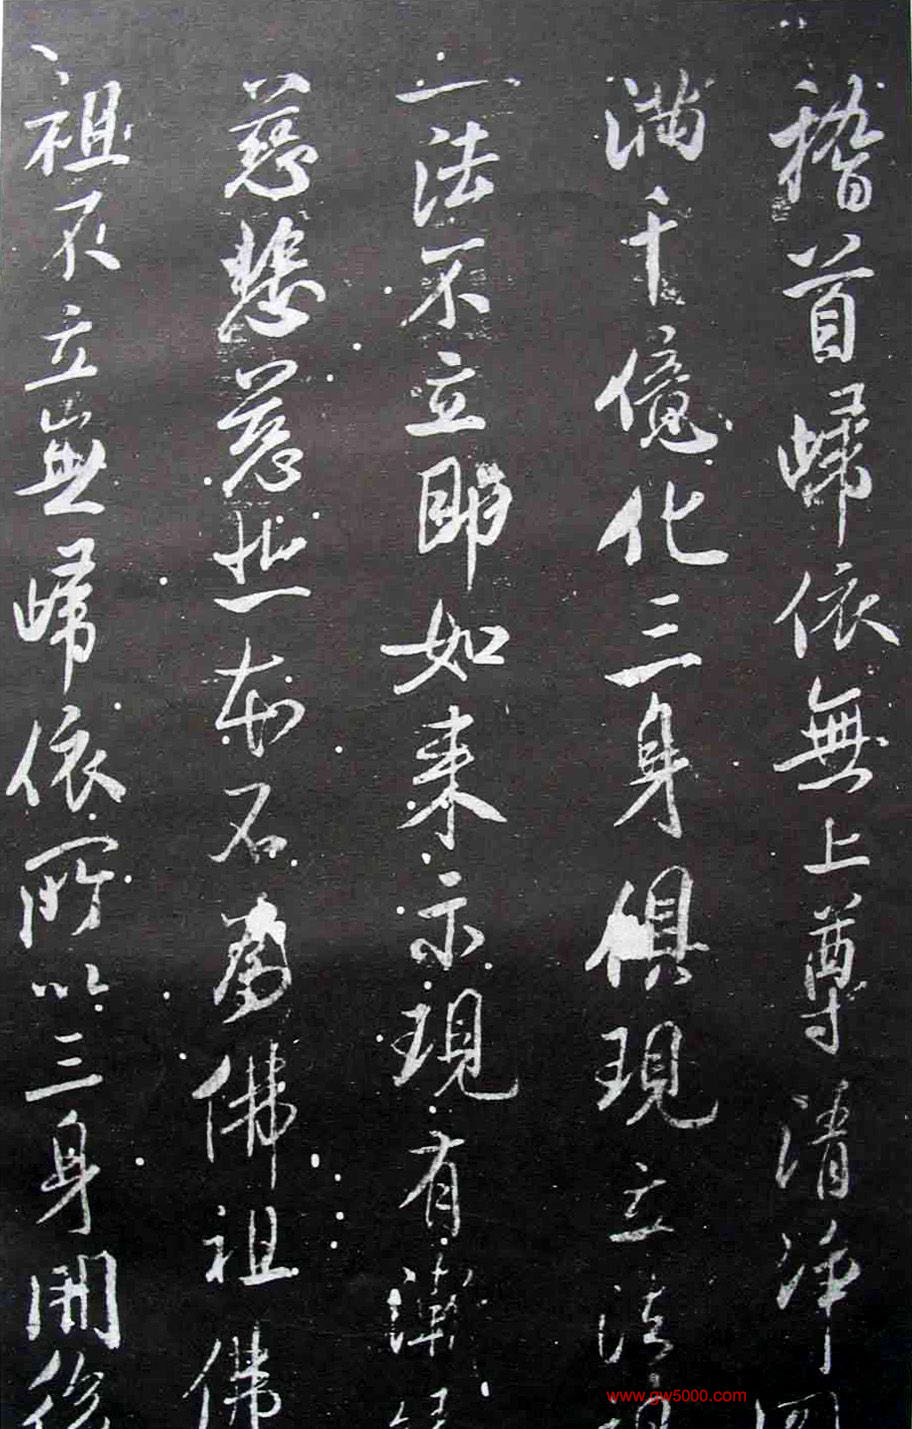 稽首歸依無上尊清淨
滿千億化三身俱現立法
一法不立即如來示現有漸
慈悲慈悲本不為佛祖佛
祖不立無歸依所以三身開後
www.gw5000.com